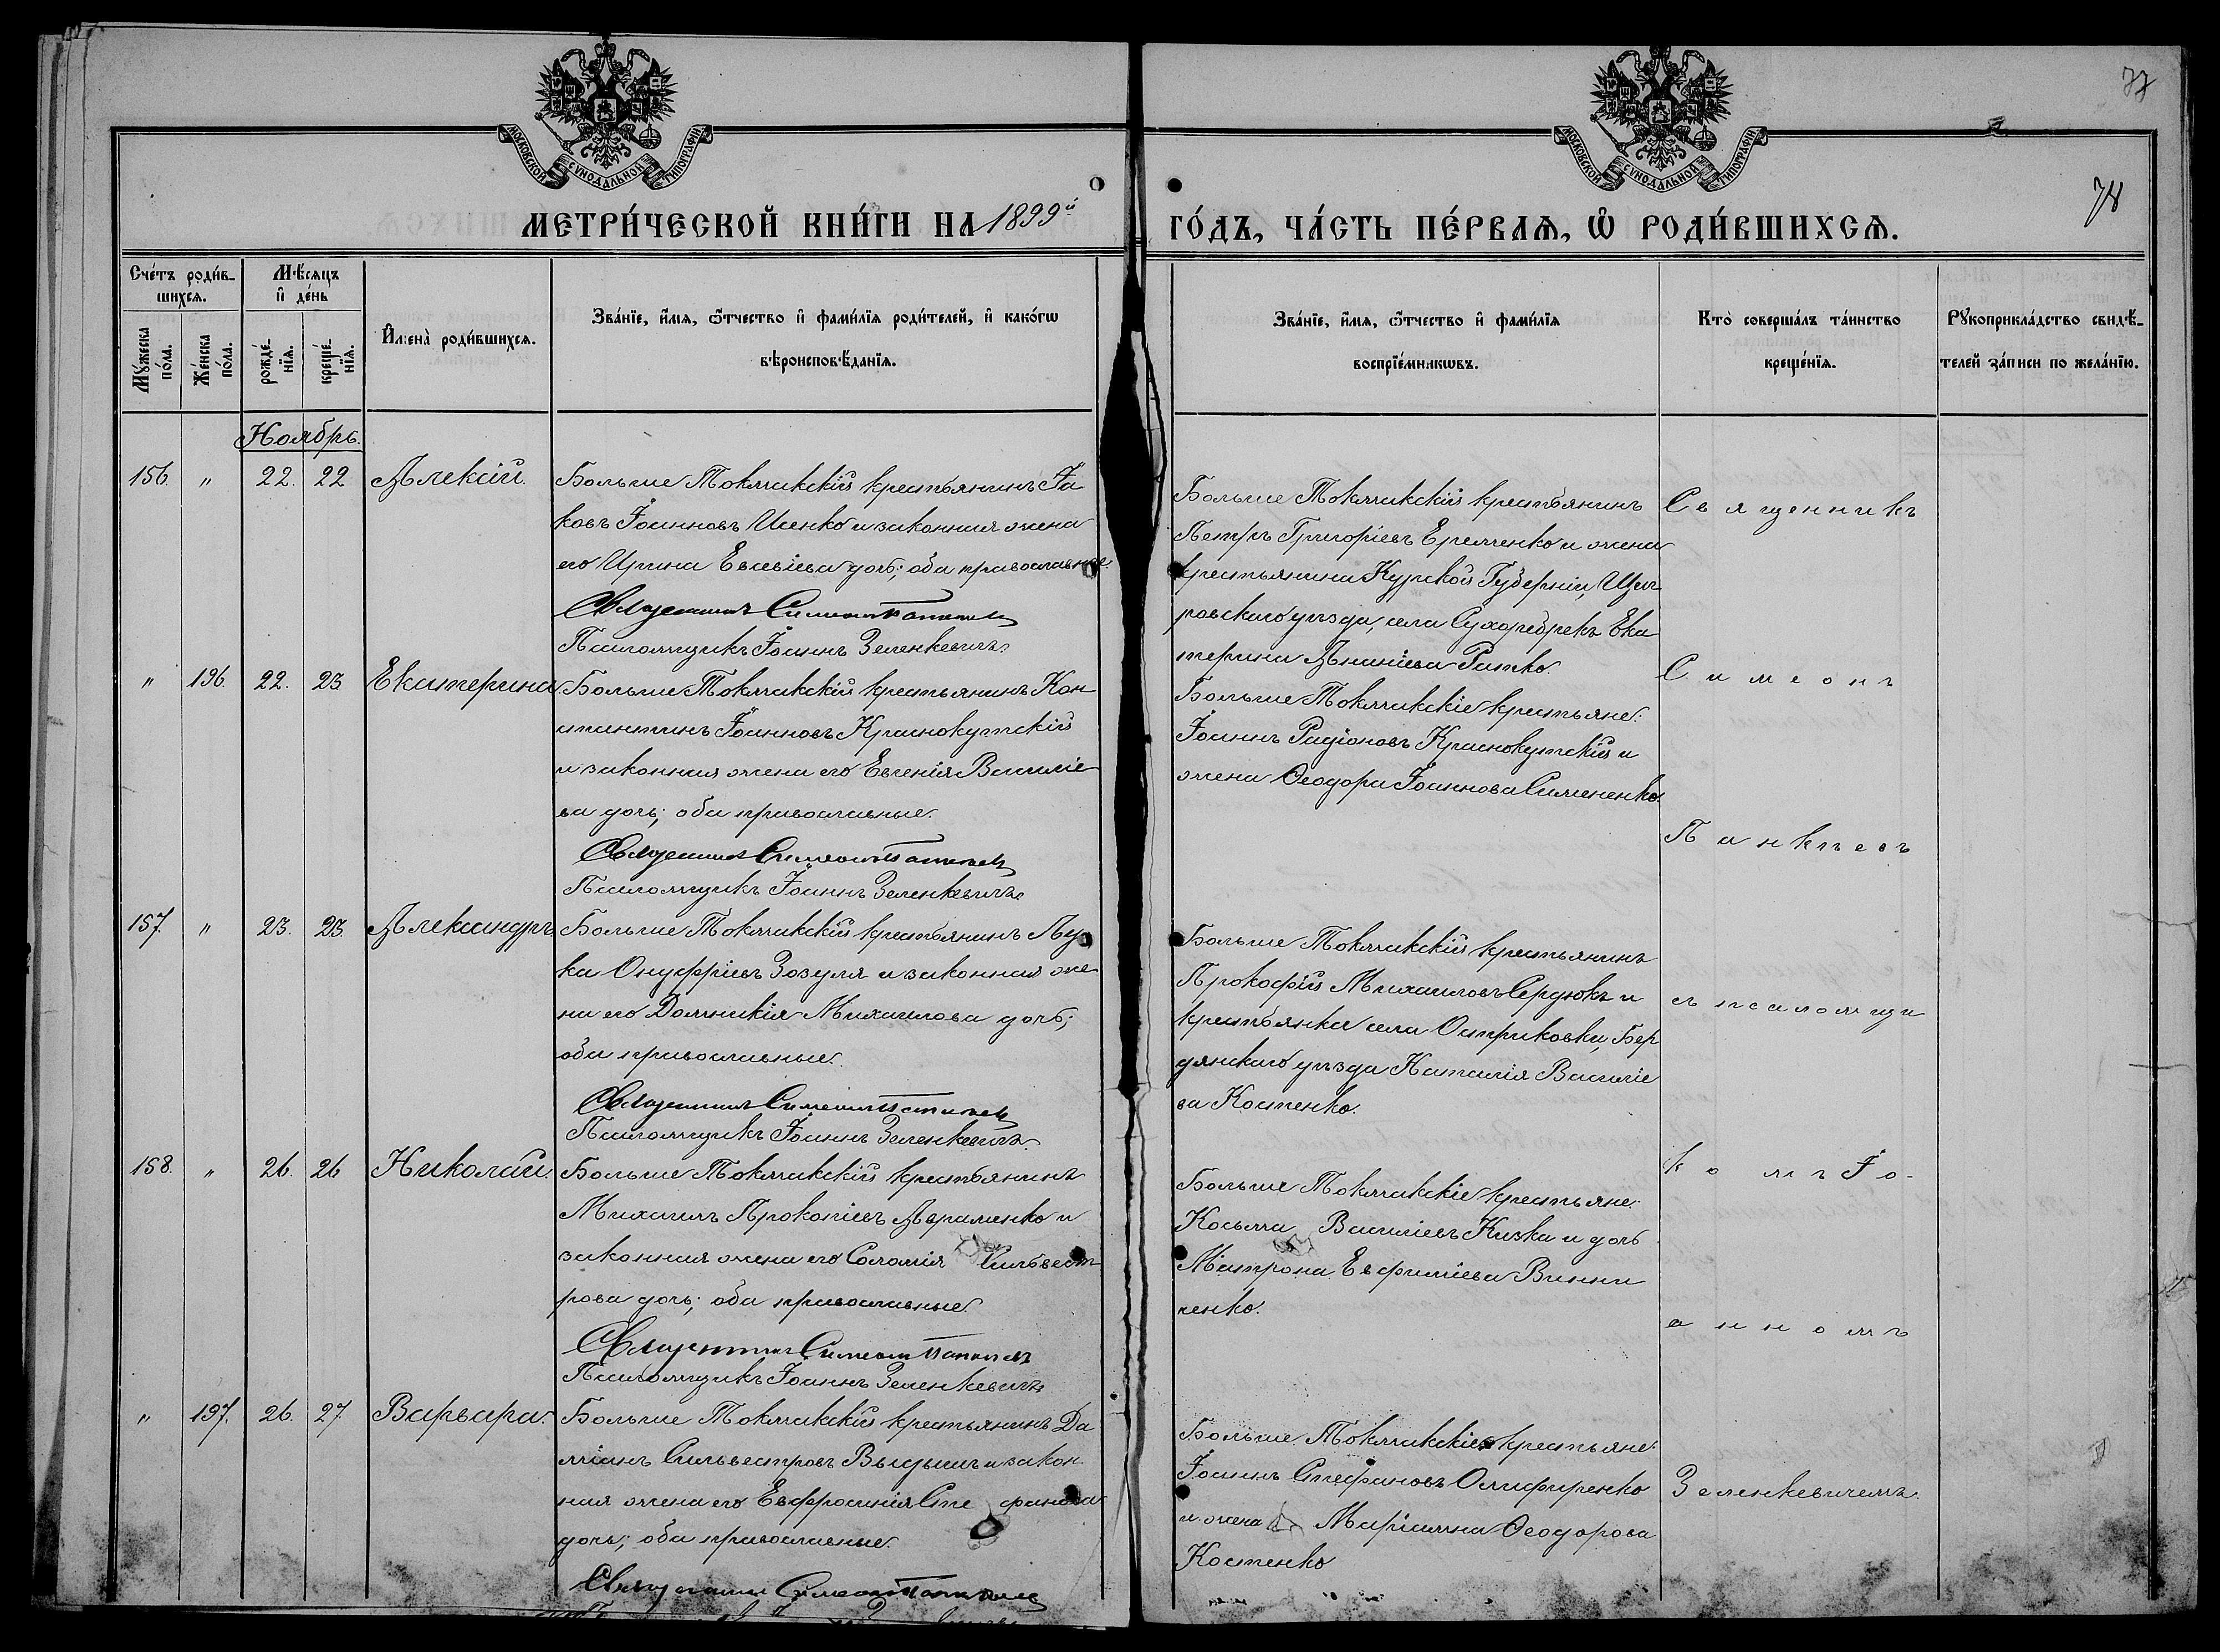 МОСКОВСКОЙ СѴНОДАЛЬНОЙ ТИПОГРАФІИ
МОСКОВСКОЙ СѴНОДАЛЬНОЙ ТИПОГРАФІИ
77
78
МЕТРИ́ЧЕСКОЙ КНИ́ГИ НА 1899й
ГО́ДЪ, ЧА́СТЬ ПЕ́РВАѦ, Ѡ҆ РОДИ́ВШИХСѦ.
Сче́тъ роди́в-
шихсѧ.
Мꙋ́жеска по́ла.
Же́нска по́ла.
Мѣ́сяцъ
и҆ де́нь
рожде́-нїѧ.
креще́-нїѧ.
И҆мена̀ роди́вшихсѧ.
Зва́нїе, и҆́мѧ, ѻ҆́тчество и҆ фами́лїѧ роди́телей, и҆ како́гѡ
вѣроисповѣ́данїѧ.
Зва́нїе, и҆́мѧ, ѻ҆́тчество и҆ фами́лїѧ
воспрїе́мникѡвъ.
Кто̀ соверша́лъ та́инство
креще́нїѧ.
Рꙋкоприкла́дство свидѣ́-
телей за́писи по жела́нїю.
Ноябрь.
156. " 22. 22 Алексій.
Больше Токмакскій крестьянинъ Іа
ковъ Іоанновъ Исенко и законная жена
его Ирина Евсевіева дочь; оба православные.
Священникъ Симеонъ Панкѣевъ
Псаломщикъ Іоаннъ Зеленкевичъ.
Больше Токмакскій крестьянинъ
Петръ Григоріевъ Еременко и жена
крестьянина Курской Губерніи, Щиг
ровскаго уѣзда, села Сухоребрекъ Ека
терина Ананіева Ратко.
" 196. 22. 23 Екатерина
Больше Токмакскій крестьянинъ Кон
стантинъ Іоанновъ Краснокутскій
и законная жена его Евгенія Василіе
ва дочь; оба православные.
Священникъ Симеонъ Панкѣевъ
Псаломщикъ Іоаннъ Зеленкевичъ.
Больше Токмакскіе крестьяне:
Іоаннъ Радіоновъ Краснокутскій и
жена Ѳеодора Іоаннова Симененко.
157. " 23. 23. Александръ.
Больше Токмакскій крестьянинъ Лу
ка Онуфріевъ Зозуля и законная же
на его Домникія Михаилова дочь;
оба православные.
Священникъ Симеонъ Панкѣевъ
Псаломщикъ Іоаннъ Зеленкевичъ.
Больше Токмакскій крестьянинъ
Прокофій Михаиловъ Сердюкъ и
крестьянка села Остриковки, Бер
дянскаго уѣзда Наталія Василіе
ва Костенко.
158. " 26. 26 Николай.
Больше Токмакскій крестьянинъ
Михаилъ Прокопіевъ Авраменко и
законная жена его Соломія Сильвест
рова дочь; оба православные.
Священникъ Симеонъ Панкѣевъ
Псаломщикъ Іоаннъ Зеленкевичъ.
Больше Токмакскіе крестьяне:
Косьма Василіевъ Кизка и дочь
Матрона Евфиміева Винни
ченко.
" 197. 26. 27 Варвара.
Больше Токмакскій крестьянинъ Да
міанъ Сильвестровъ Выдышъ и закон
ная жена его Евфросинія Сте фанова
дочь; оба православные.
Священникъ Симеонъ Панкѣевъ
Больше Токмакскіе крестьяне:
Іоаннъ Стефановъ Олифиренко
и жена Маріамна Ѳеодорова
Костенко
Священникъ
Симеонъ
Панкѣевъ
съ псаломщи
комъ Іо-
анномъ
Зеленкевичемъ.